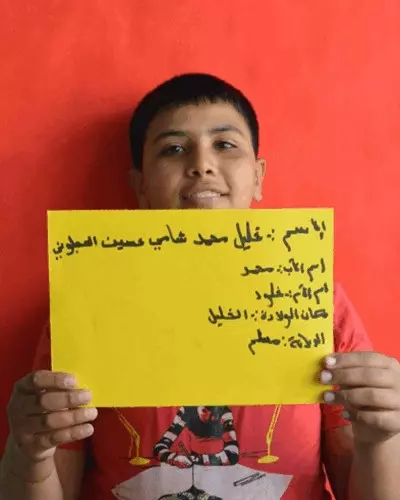 الاسم :- خليل محمد شامي حسين العجلوني
اسم الأب:- محمد
اسم الأم:- خلود
مكان الولادة:- الخليل
الديانة:- مسلم